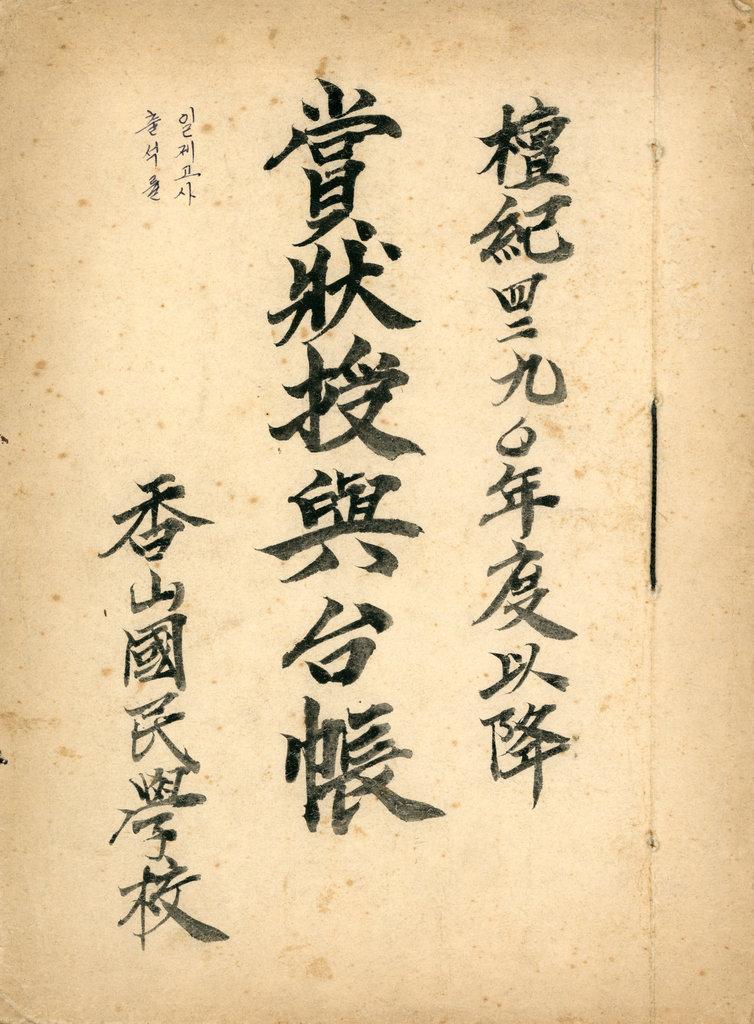 檀紀四二九〇年度以降
賞狀授與台帳
일제고사
출석률
香山國民學校